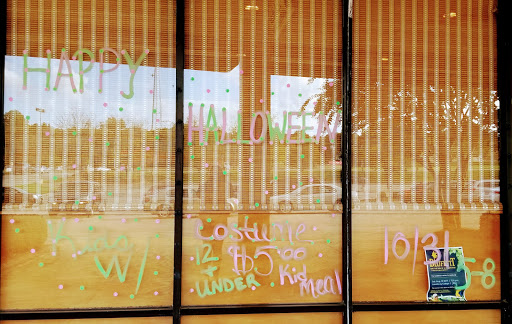 HAPPY
HALLOWEEN
Kids W/ Costume 12 + UNDER $5.00 Kid Meal
10/31 5-8